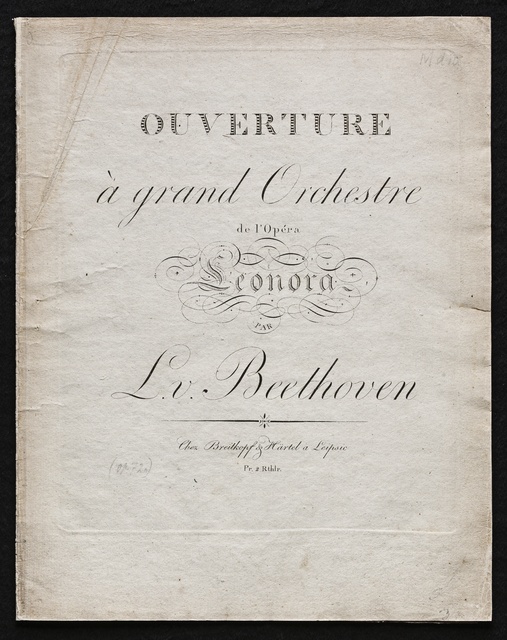 OUVERTURE
à grand Orchestre
de l'Opéra
Leonora
PAR
L. v. Beethoven
Chez Breitkopf & Härtel à Leipsic
Pr. 2 Rthlr.